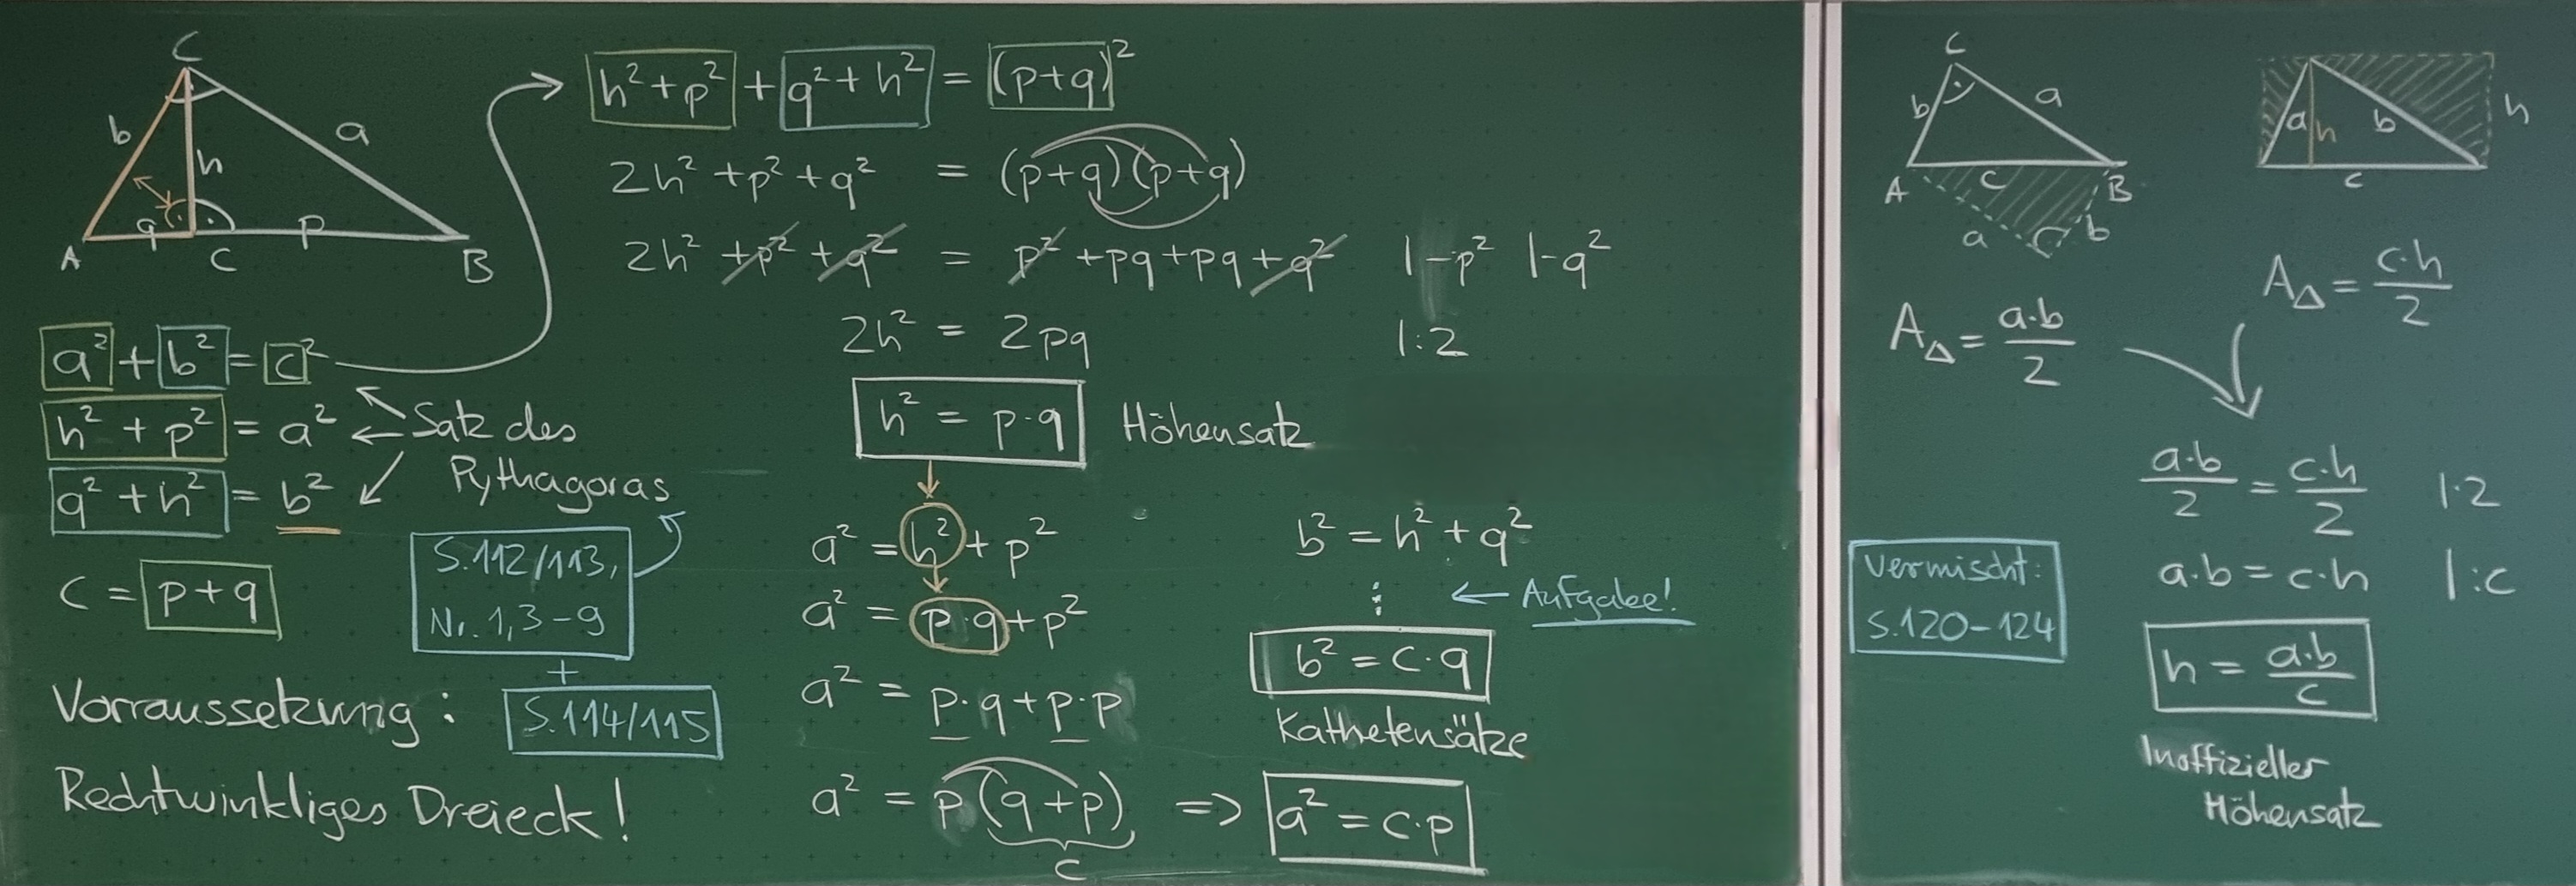 C
b
a
h
q
p
A
C
B
a² + b² = c²
h² + p² = a²
q² + h² = b²
Satz des
Pythagoras
c = p+q
S.112/113,
Nr. 1,3-9
+
S.114/115
Vorraussetzung:
Rechtwinkliges Dreieck!
h²+p² + q²+h² = (p+q)²
2h² +p² +q² = (p+q)(p+q)
2h² +p² +q² = p² +pq+pq+q² |-p² |-q²
2h² = 2pq |:2
h² = p·q Höhensatz
a² = h² + p²
a² = p·q + p²
a² = p·q + p·p
a² = p(q+p) => a² = c·p
c
b² = h² + q²
⋮ ← Aufgabe!
b² = c·q
Kathetensätze
C
b
a
A
c
B
a
b
A△ = a·b/2
a
h
b
h
c
A△ = c·h/2
a·b/2 = c·h/2 |·2
a·b = c·h |:c
h = a·b/c
Inoffizieller
Höhensatz
Vermischt:
S.120-124